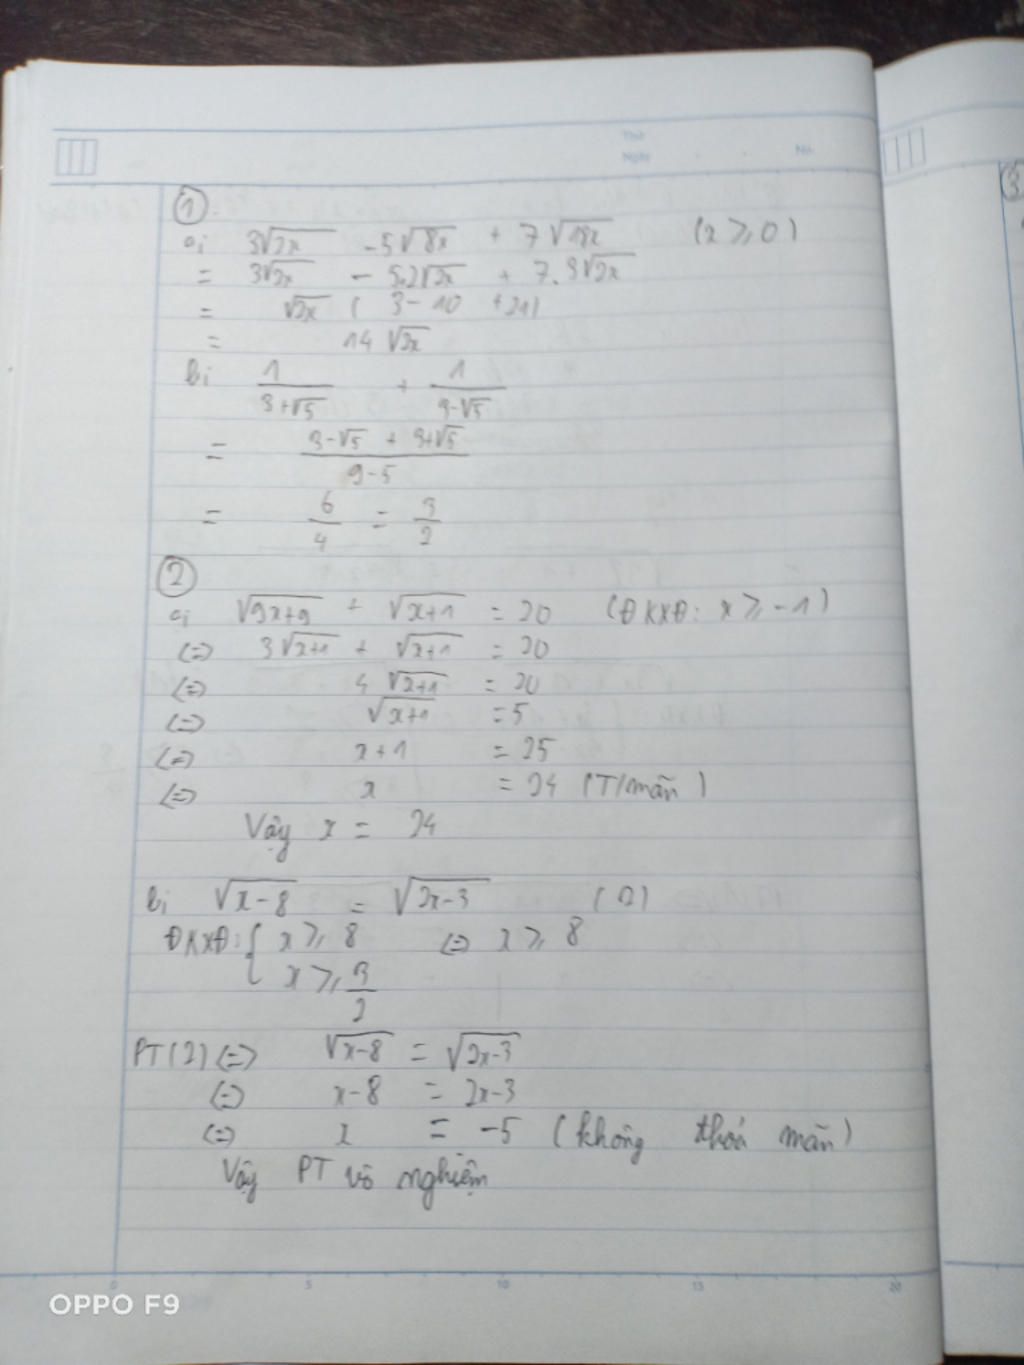 Thứ
Ngày . . No.
①
a, 3√2x - 5√8x + 7√18x (x ≥ 0)
= 3√2x - 5.2√2x + 7.3√2x
= √2x ( 3 - 10 + 21)
= 14 √2x
b, 1/(3+√5) + 1/(3-√5)
= (3-√5 + 3+√5)/(9-5)
= 6/4 = 3/2
②
a, √9x+9 + √x+1 = 20 (ĐKXĐ: x ≥ -1)
<=> 3√x+1 + √x+1 = 20
<=> 4 √x+1 = 20
<=> √x+1 = 5
<=> x+1 = 25
<=> x = 24 (T/mãn)
Vậy x = 24
b, √x-8 = √2x-3 (2)
ĐKXĐ: { x ≥ 8 <=> x ≥ 8
x ≥ 3/2
PT(2) <=> √x-8 = √2x-3
<=> x-8 = 2x-3
<=> x = -5 (không thoả mãn)
Vậy PT vô nghiệm
0 5 10 15 20
OPPO F9
3